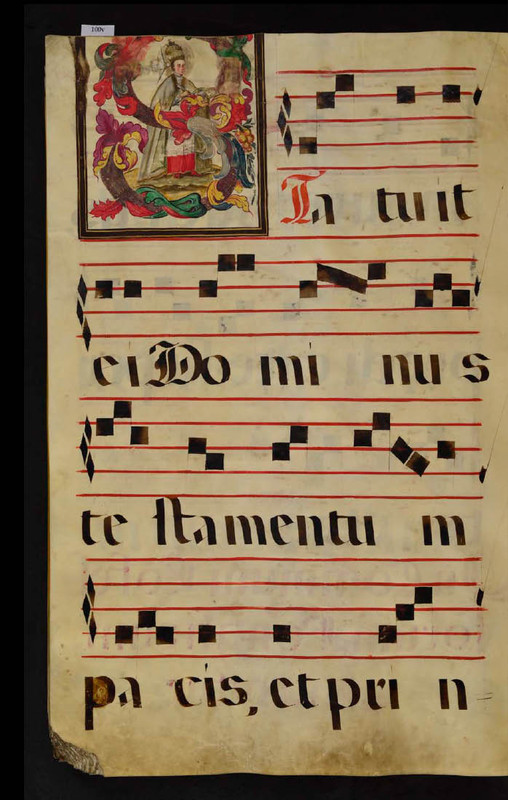 100v
STa tuit
ei Do mi nus
te stamentu m
pa cis, et pri n-